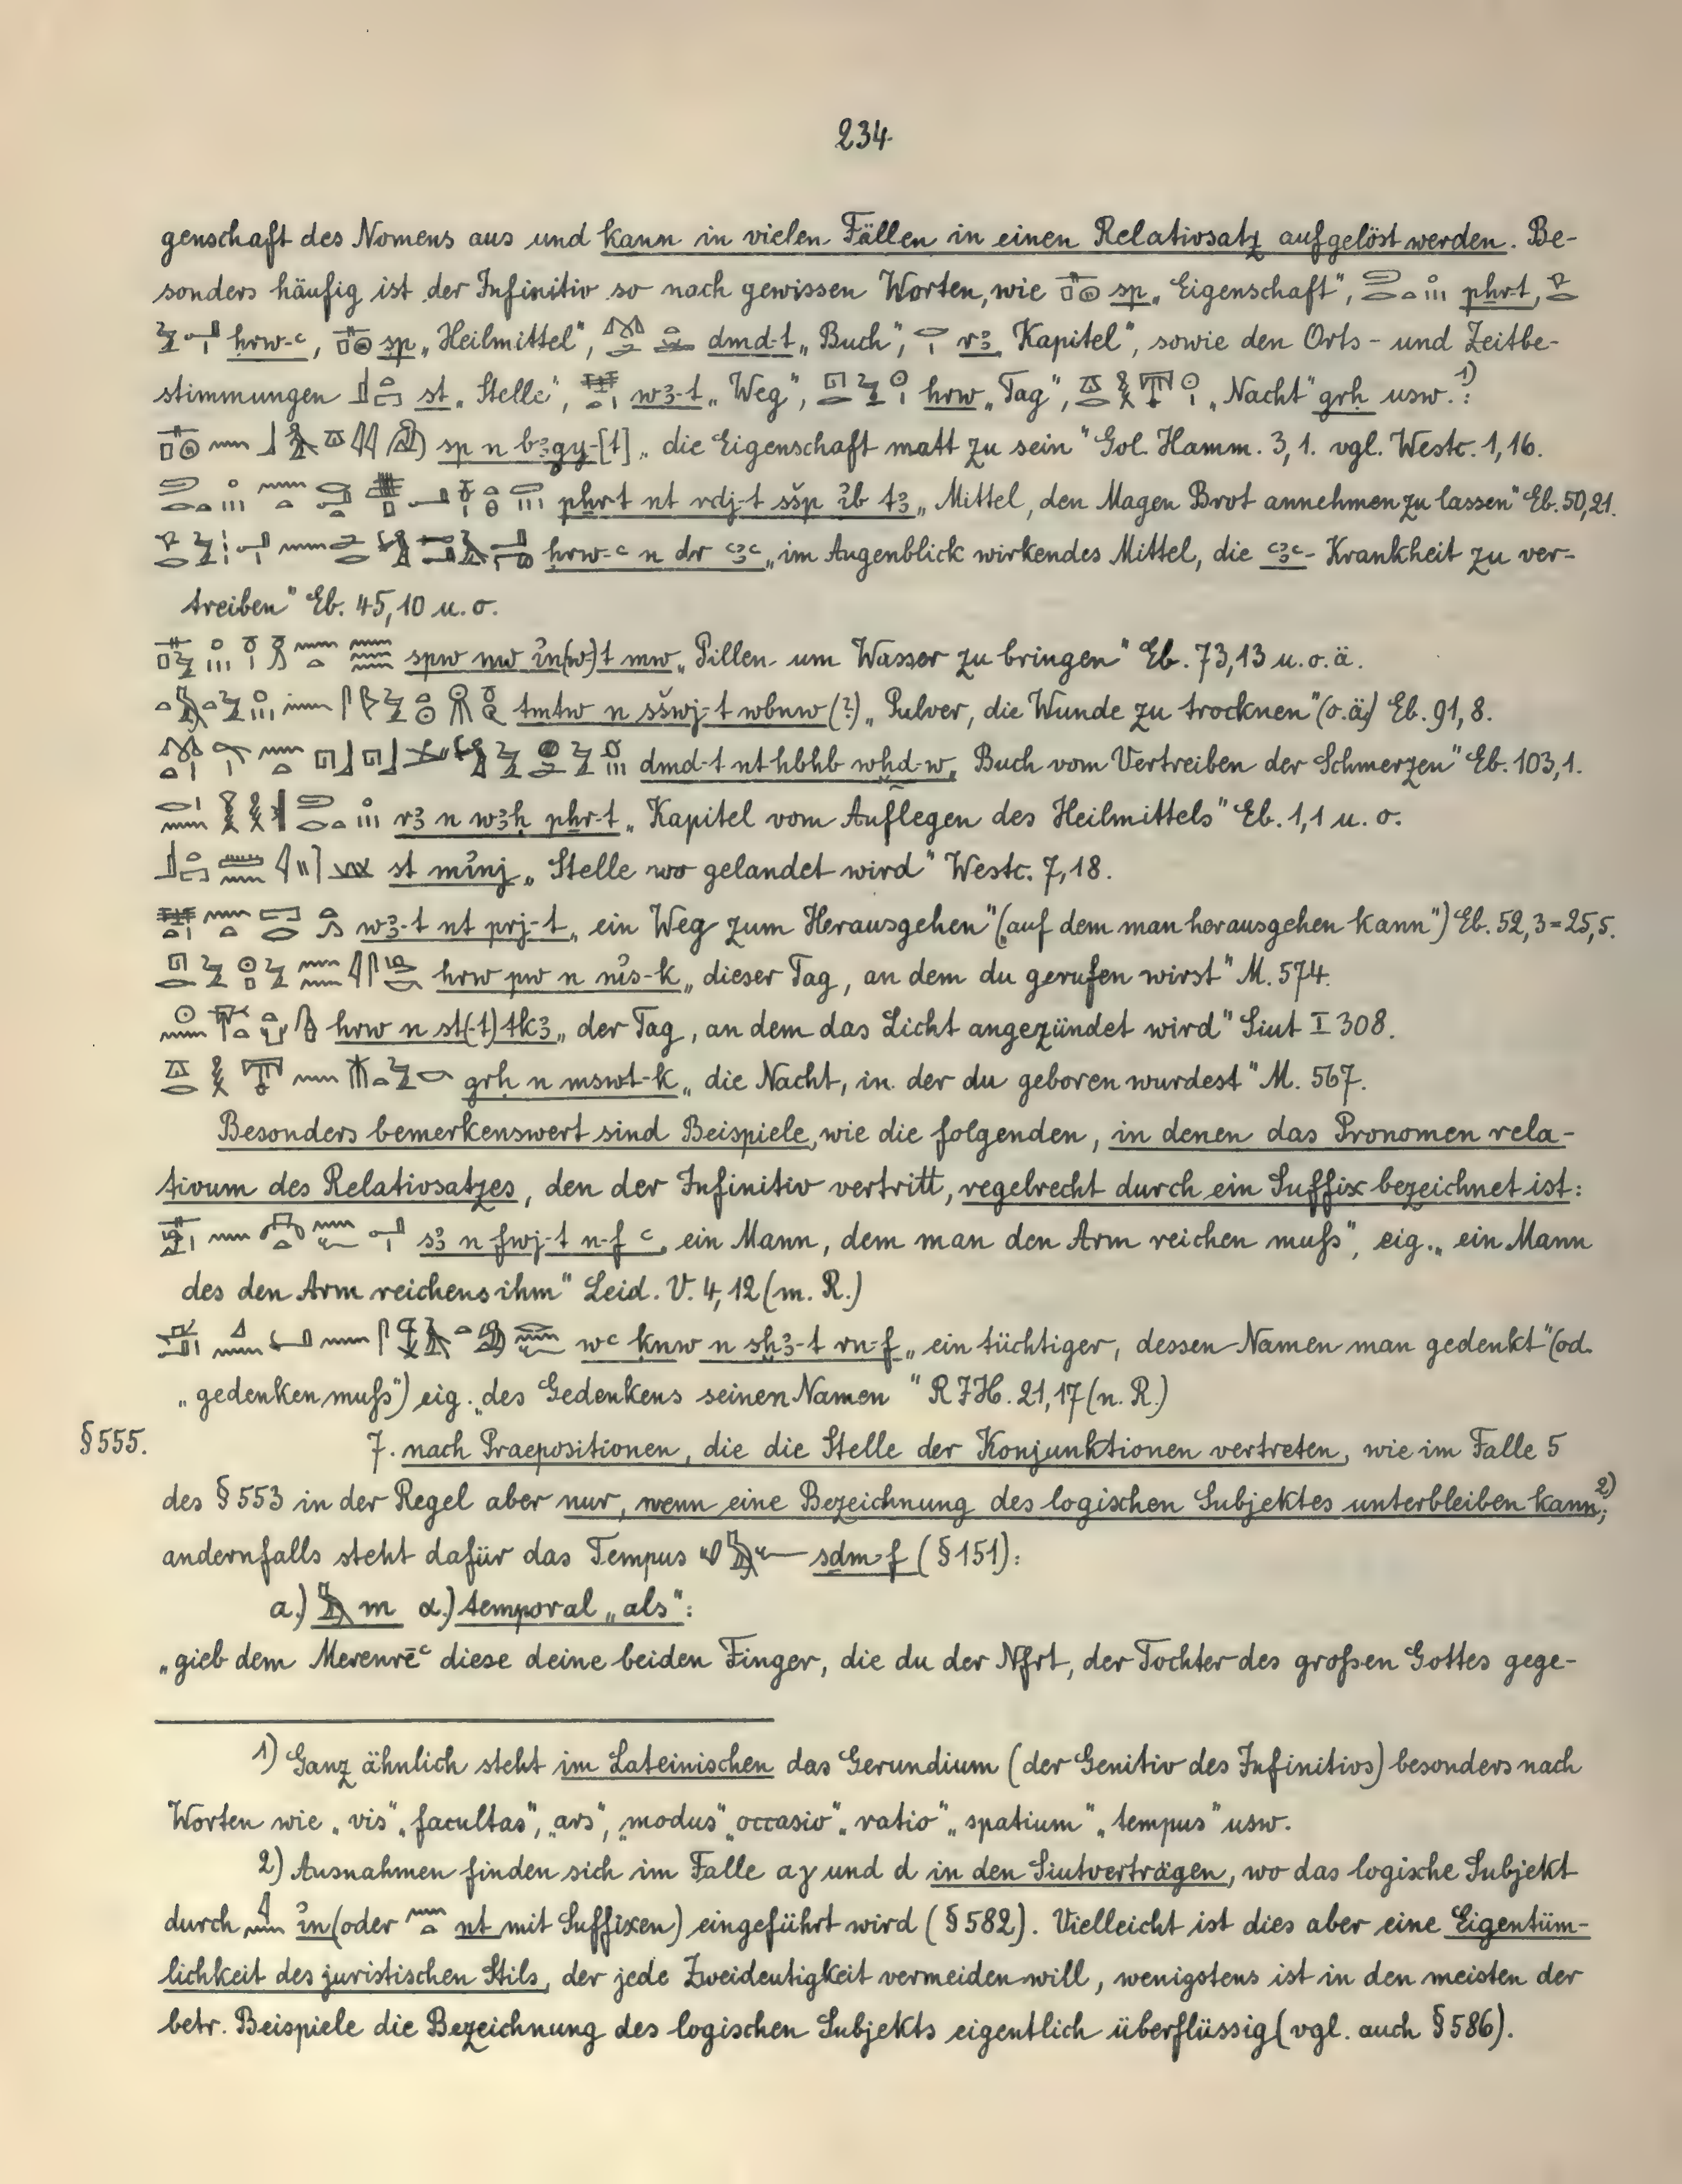 234
genschaft des Nomens aus und kann in vielen Fällen in einen Relativsatz aufgelöst werden. Be-
sonders häufig ist der Infinitiv so nach gewissen Worten, wie sp „Eigenschaft", pẖr-t,
ḥrw-ꜥ, sp „Heilmittel", dmd-t „Buch", rꜣ „Kapitel", sowie den Orts- und Zeitbe-
stimmungen st „Stelle", wꜣ-t „Weg", hrw „Tag", „Nacht" grḥ usw.:1)
sp n bꜣgy-[t] „die Eigenschaft matt zu sein" Gol. Hamm. 3,1. vgl. Westc. 1,16.
pẖr-t nt rdj-t sšp ỉb tꜣ „Mittel, den Magen Brot annehmen zu lassen" Eb. 50,21.
ḥrw-ꜥ n dr ꜥꜣꜥ „im Augenblick wirkendes Mittel, die ꜥꜣꜥ-Krankheit zu ver-
treiben" Eb. 45,10 u. o.
spw nw ỉn(w)t mw „Pillen um Wasser zu bringen" Eb. 73,13 u. o. ä.
tmtw n sšwj-t wbnw (?) „Pulver, die Wunde zu trocknen" (o. ä.) Eb. 91,8.
dmd-t nt hbhb wḫd-w „Buch vom Vertreiben der Schmerzen" Eb. 103,1.
rꜣ n wꜣḥ pẖr-t „Kapitel vom Auflegen des Heilmittels" Eb. 1,1 u. o.
st mỉnj „Stelle wo gelandet wird" Westc. 7,18.
wꜣ-t nt prj-t „ein Weg zum Herausgehen" („auf dem man herausgehen kann") Eb. 52,3=25,5.
hrw pw n nỉs-k „dieser Tag, an dem du gerufen wirst" M. 574.
hrw n st(-t) tkꜣ „der Tag, an dem das Licht angezündet wird" Siut I 308.
grḥ n mswt-k „die Nacht, in der du geboren wurdest" M. 567.
Besonders bemerkenswert sind Beispiele, wie die folgenden, in denen das Pronomen rela-
tivum des Relativsatzes, den der Infinitiv vertritt, regelrecht durch ein Suffix bezeichnet ist:
sꜣ n fwj-t n-f ꜥ „ein Mann, dem man den Arm reichen muß", eig. „ein Mann
des den Arm reichens ihm" Leid. V. 4,12 (m. R.)
wꜥ ḳnw n sḫꜣ-t rn-f „ein tüchtiger, dessen Namen man gedenkt" (od.
„gedenken muß") eig. „des Gedenkens seinen Namen" RJH. 21,17 (n. R.)
§ 555. 7. nach Praepositionen, die die Stelle der Konjunktionen vertreten, wie im Falle 5
des § 553 in der Regel aber nur, wenn eine Bezeichnung des logischen Subjektes unterbleiben kann;2)
andernfalls steht dafür das Tempus sḏm-f (§ 151):
a.) m α.) temporal „als":
„gieb dem Merenrēꜥ diese deine beiden Finger, die du der Nfrt, der Tochter des großen Gottes gege-
1) Ganz ähnlich steht im Lateinischen das Gerundium (der Genitiv des Infinitivs) besonders nach
Worten wie „vis", „facultas", „ars", „modus" „occasio" „ratio" „spatium" „tempus" usw.
2) Ausnahmen finden sich im Falle aγ und d in den Siutverträgen, wo das logische Subjekt
durch ỉn (oder nt mit Suffixen) eingeführt wird (§ 582). Vielleicht ist dies aber eine Eigentüm-
lichkeit des juristischen Stils, der jede Zweideutigkeit vermeiden will, wenigstens ist in den meisten der
betr. Beispiele die Bezeichnung des logischen Subjekts eigentlich überflüssig (vgl. auch § 586).